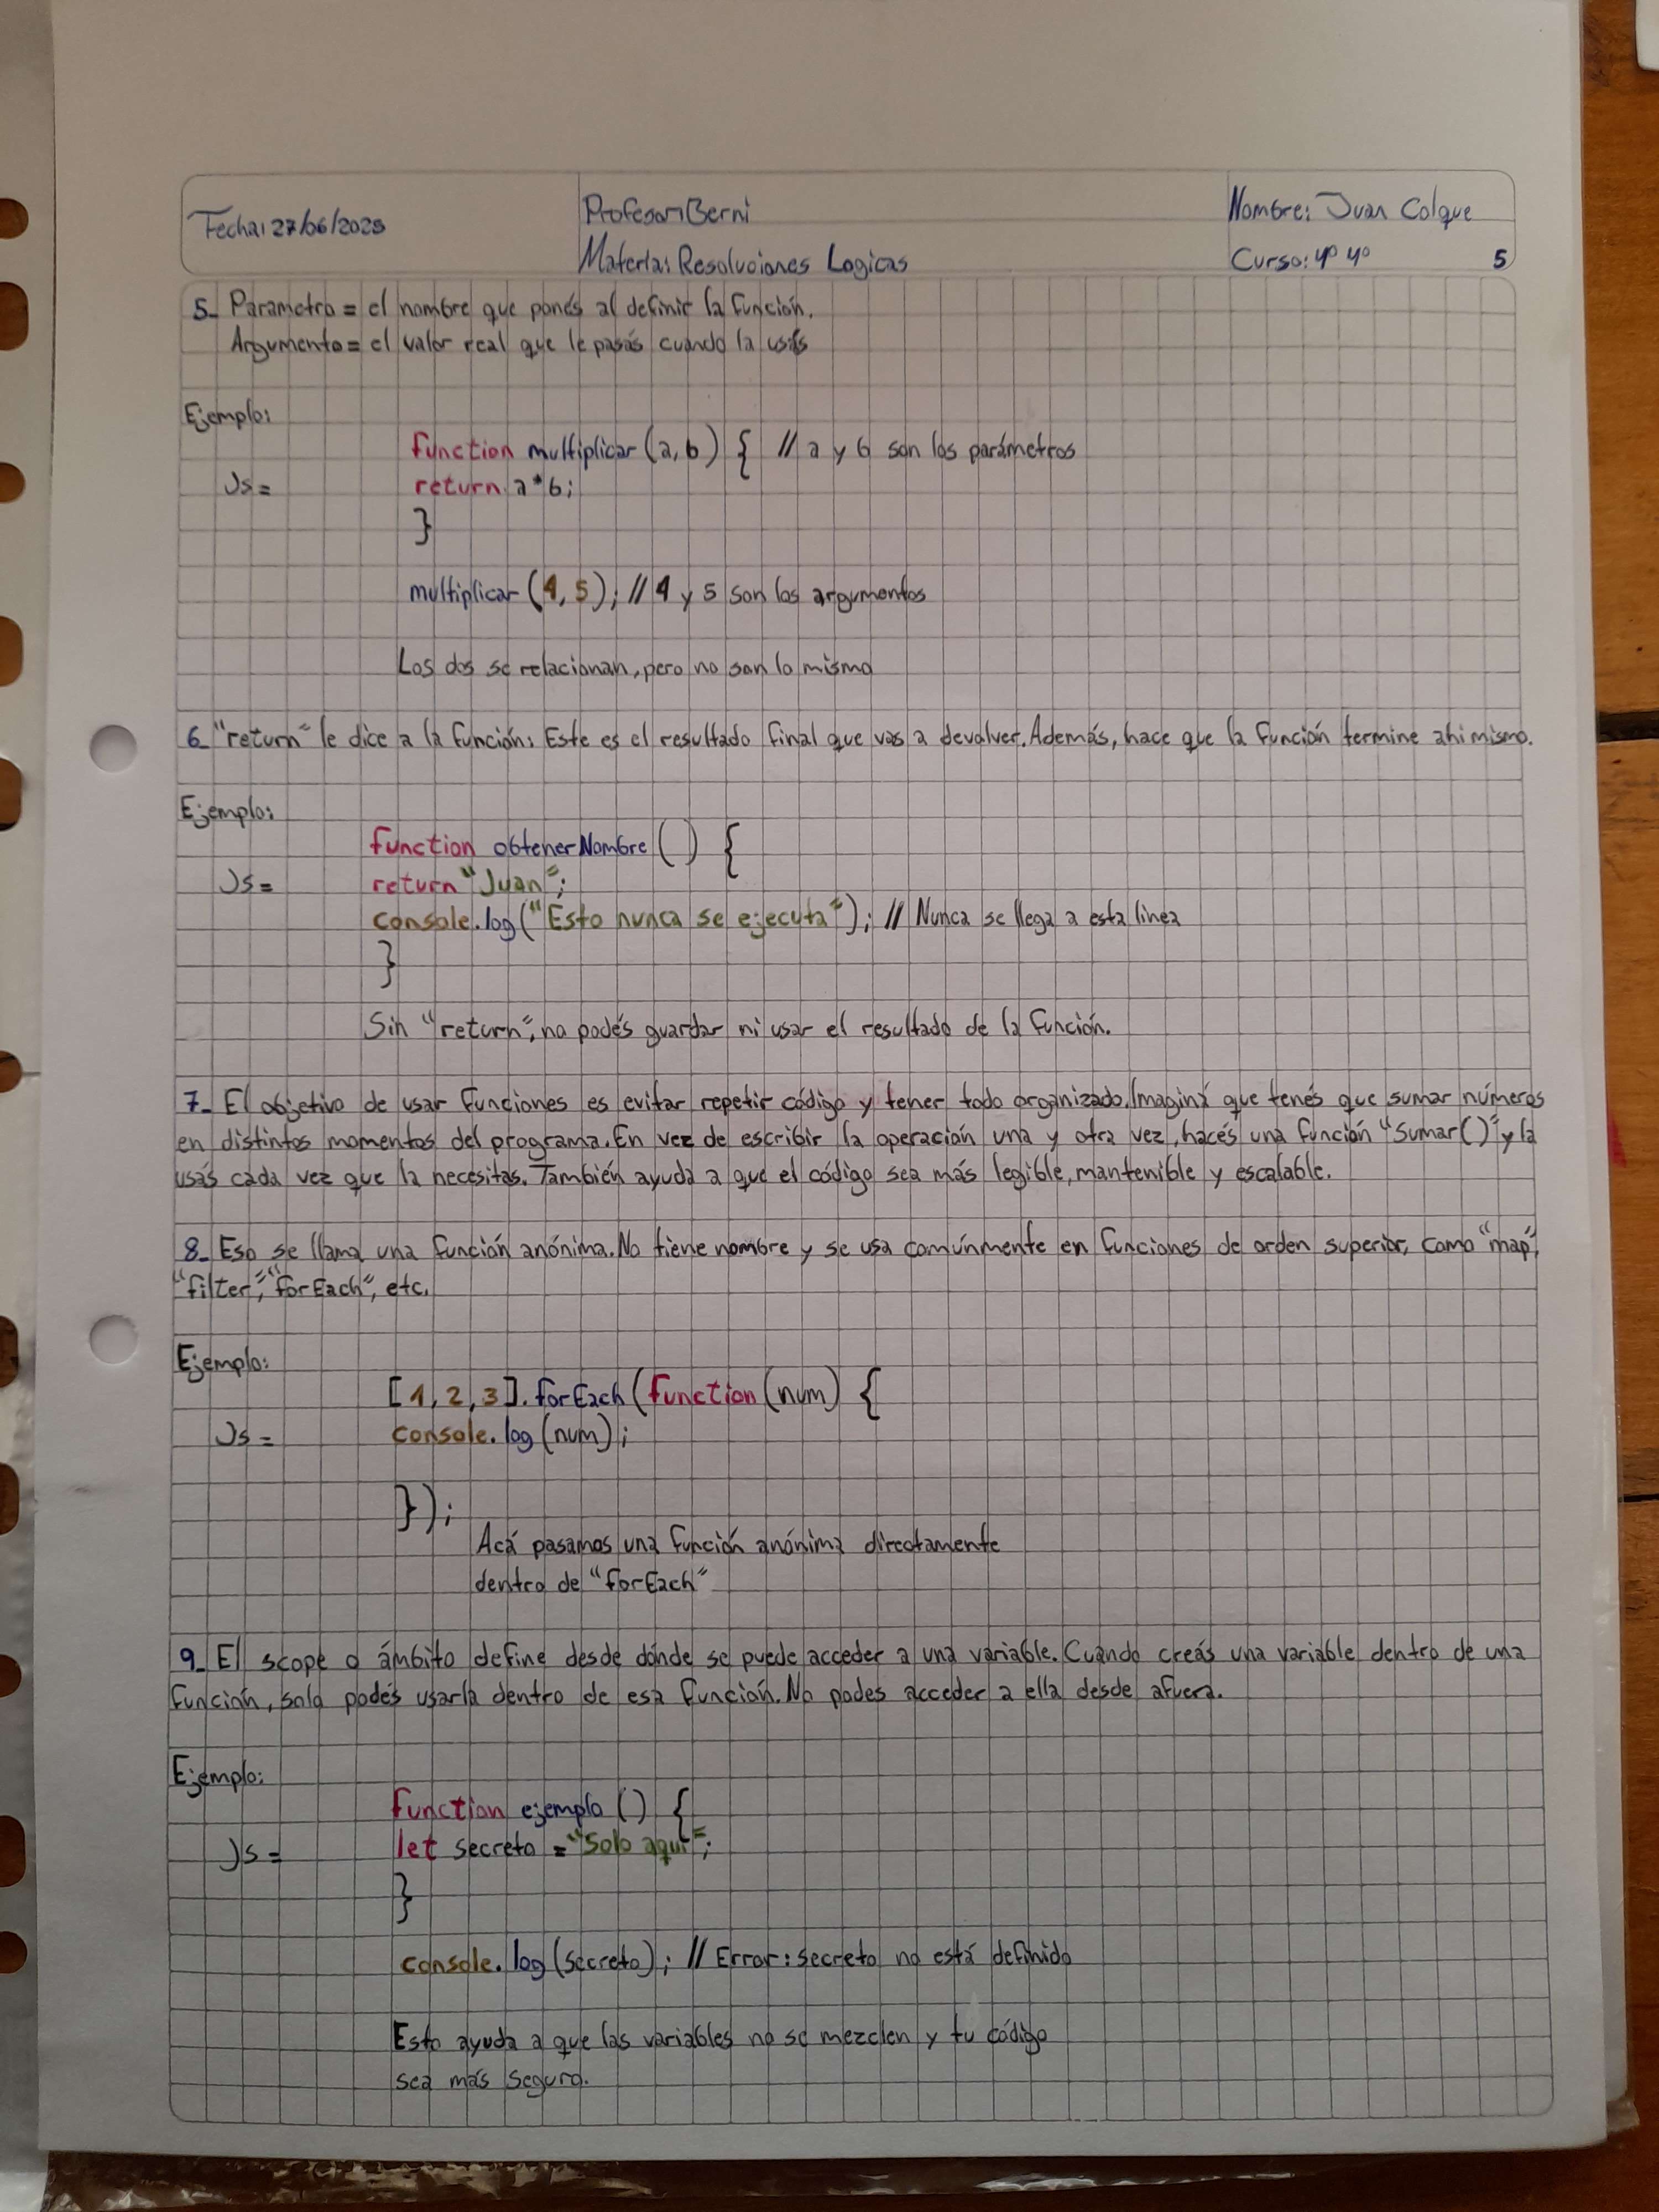 Fecha: 27/06/2025
Profesor: Berni
Materia: Resoluciones Logicas
Nombre: Juan Colque
Curso: 4º 4º
5
5_ Parametro = el nombre que ponés al definir la función.
Argumento = el valor real que le pasás cuando la usás
Ejemplo:
function multiplicar (a, b) { // a y b son los parámetros
Js =
return a * b;
}
multiplicar (4, 5); // 4 y 5 son los argumentos
Los dos se relacionan, pero no son lo mismo
6_ "return" le dice a la función: Este es el resultado final que vas a devolver. Además, hace que la función termine ahi mismo.
Ejemplo:
function obtenerNombre () {
Js =
return "Juan";
console.log("Esto nunca se ejecuta"); // Nunca se llega a esta linea
}
Sin "return", no podés guardar ni usar el resultado de la función.
7_ El objetivo de usar funciones es evitar repetir código y tener todo organizado. Imaginá que tenés que sumar números
en distintos momentos del programa. En vez de escribir la operación una y otra vez, hacés una función "Sumar()" y la
usás cada vez que la necesitas. También ayuda a que el código sea más legible, mantenible y escalable.
8_ Eso se llama una función anónima. No tiene nombre y se usa comúnmente en funciones de orden superior, como "map",
"filter", "forEach", etc.
Ejemplo:
[1, 2, 3].forEach(function (num) {
Js =
console.log(num);
});
Acá pasamos una función anónima directamente
dentro de "forEach"
9_ El scope o ámbito define desde dónde se puede acceder a una variable. Cuando creás una variable dentro de una
función, solo podés usarla dentro de esa función. No podes acceder a ella desde afuera.
Ejemplo:
function ejemplo () {
Js =
let secreto = "Solo aquí";
}
console.log(secreto); // Error: secreto no está definido
Esto ayuda a que las variables no se mezclen y tu código
sea más seguro.